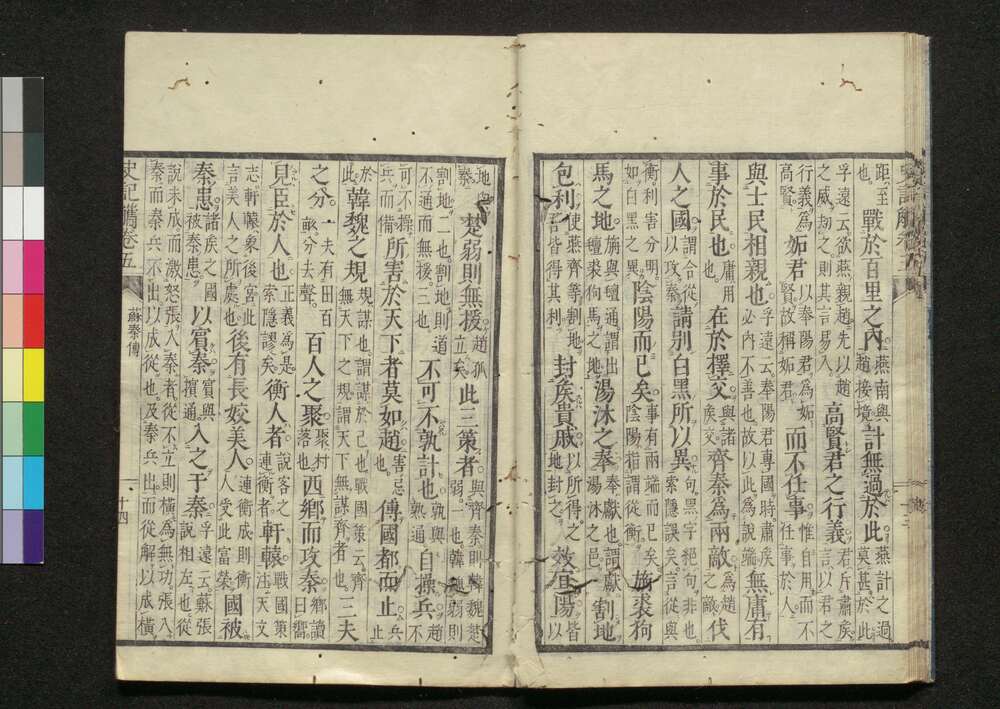 距至戰於百里之內燕南與趙接境計無過於此燕計之過莫甚於此
孚遠云欲燕親趙先以趙之威刼之則其言易入高賢君之行義君斥肅侯言以君之
行義為高賢妬君以奉陽君為妬賢故稱妬君而不任事惟自用而不任事於人
與士民相親也孚遠云奉陽君專國時肅侯必內不善也故以此為說端無庸有
事於民也庸用也在於擇交與諸侯交齊秦為兩敵為趙之敵伐
人之國謂合從以攻秦請別白黑所以異句黑字絕句非也索隱誤矣言從與
衡利害分明如白黑之異陰陽而已矣事有兩端而已矣陰陽指謂從衡旃裘狗
馬之地旃與氈通謂出氈裘狗馬之地湯沐之奉奉獻也謂獻湯沐之邑割地
包利使燕齊等割地言皆得其利封侯貴戚以所得之地封之效宜陽皆以
地於秦楚弱則無援趙孤立矣此三策者與齊秦則韓魏楚弱一也韓魏弱則
割地二也割地則道不通而無援三也不可不孰計也孰與熟通自操兵趙不
可不操兵而備所害於天下者莫如趙害忌也傳國都而止兵止
於此韓魏之規規謀也謂謀於己也戰國策云齊無天下之規謂天下無謀齊者也三夫
之分一夫有田百畞分去聲百人之聚聚村落也西郷而攻秦郷讀曰嚮
見臣於人也正義為是索隱謬矣衡人者說客之連衡者軒轅戰國策注天文
志軒轅象後宮此言美人之所處也後有長姣美人連衡成則衡人受此富榮國被
秦患諸侯之國被秦患以賓秦賓與擯通入之于秦孚遠云蘇張說相左也從
說未成而激怒張入秦者從不立則橫為無功張入秦而秦兵不出以成從也及秦兵出而從解以成橫
史記觿卷五
蘇秦傳
十四